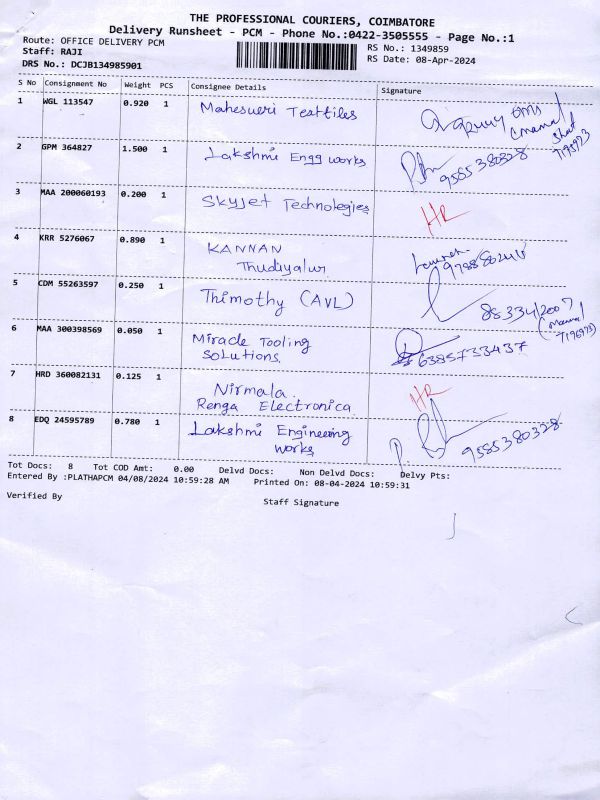 THE PROFESSIONAL COURIERS, COIMBATORE
Delivery Runsheet - PCM - Phone No.:0422-3505555 - Page No.:1
Route: OFFICE DELIVERY PCM
RS No.: 1349859
Staff: RAJI
RS Date: 08-Apr-2024
DRS No.: DCJB134985901
S No Consignment No Weight PCS Consignee Details Signature
1 WGL 113547 0.920 1 Maheswri Textiles
2 GPM 364827 1.500 1 Lakshmi Engg works 9585380328
3 MAA 200060193 0.200 1 SkyJet Technologies HR
4 KRR 5276067 0.890 1 KANNAN
Thudiyalur
5 CDM 55263597 0.250 1 Thimothy (AVL)
6 MAA 300398569 0.050 1 Miracle Tooling
Solutions 6385733437
7 HRD 360082131 0.125 1 Nirmala HR
Renga Electronica
8 EDQ 24595789 0.780 1 Lakshmi Engineering
works 9585380328
Tot Docs: 8 Tot COD Amt: 0.00 Delvd Docs: Non Delvd Docs: Delvy Pts:
Entered By :PLATHAPCM 04/08/2024 10:59:28 AM Printed On: 08-04-2024 10:59:31
Verified By
Staff Signature